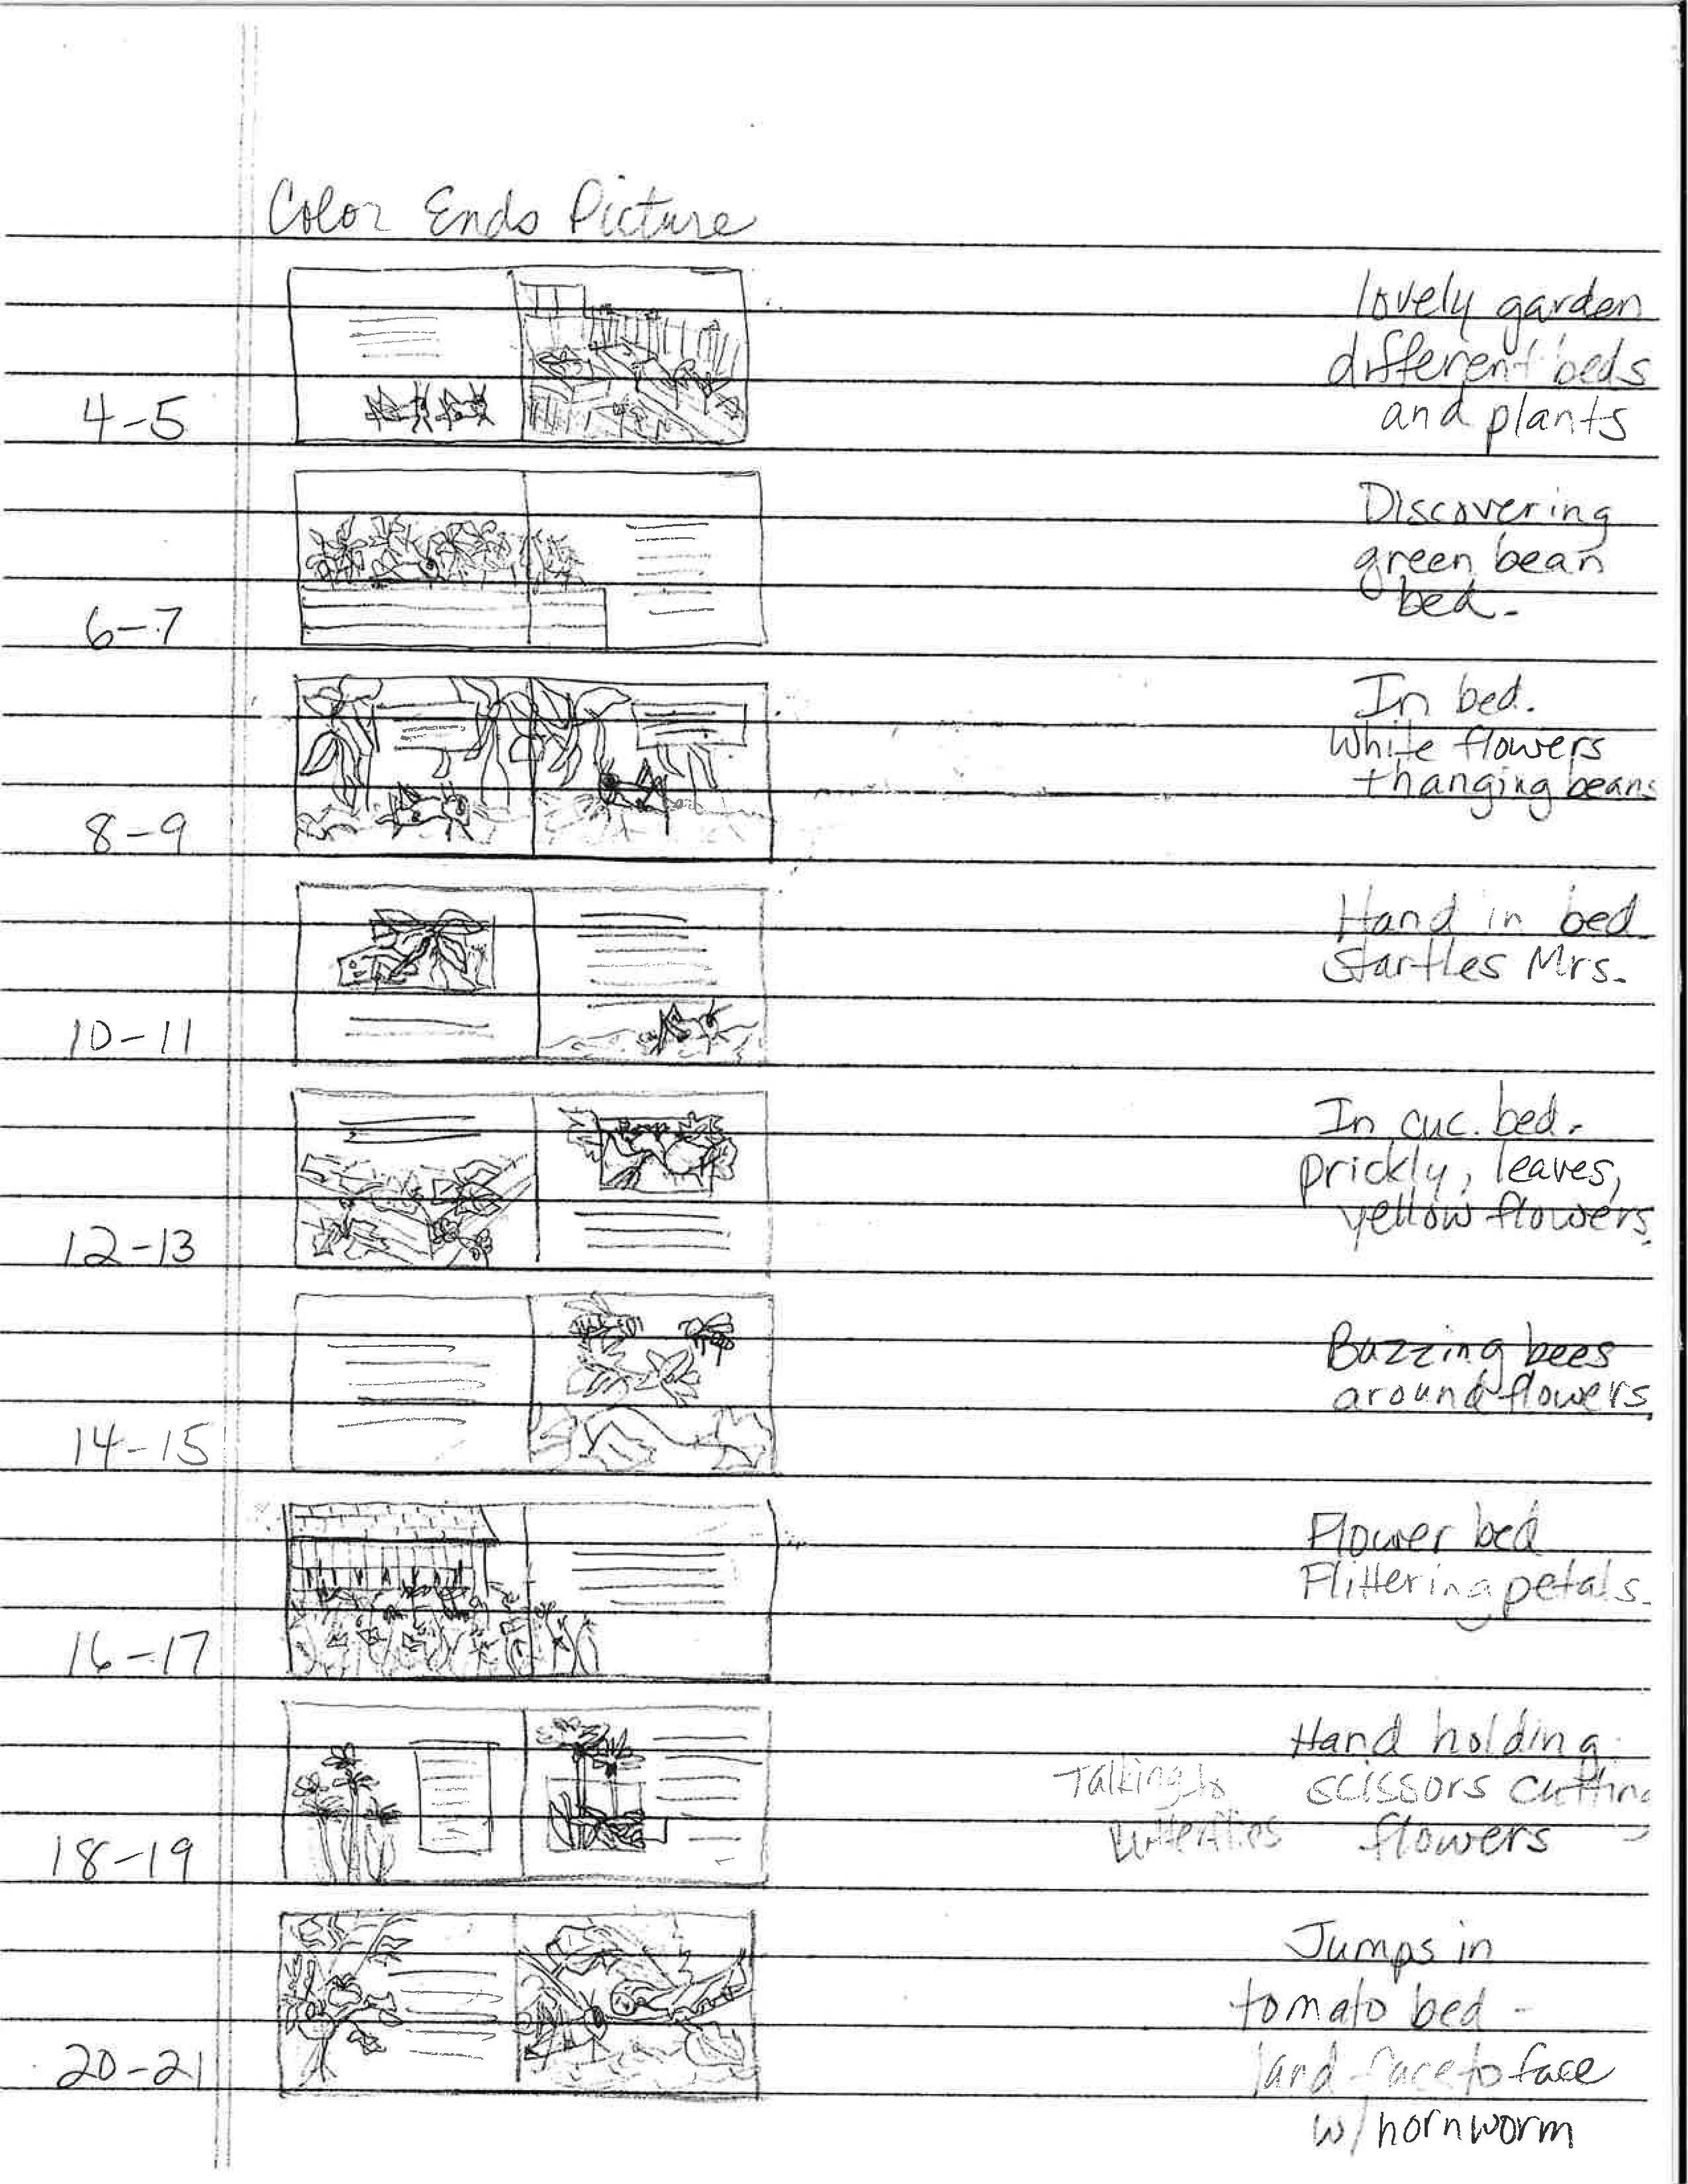 Color Ends Picture
lovely garden
different beds
and plants
4-5
Discovering
green bean
bed.
6-7
In bed.
White flowers
+hanging beans
8-9
Hand in bed
startles Mrs.
10-11
In cuc. bed.
prickly, leaves,
yellow flowers.
12-13
Buzzing bees
around flowers.
14-15
Flower bed
Flittering petals.
16-17
Hand holding
scissors cutting
flowers
Talking to
Butterflies
18-19
Jumps in
tomato bed -
land face to face
w/ hornworm
20-21